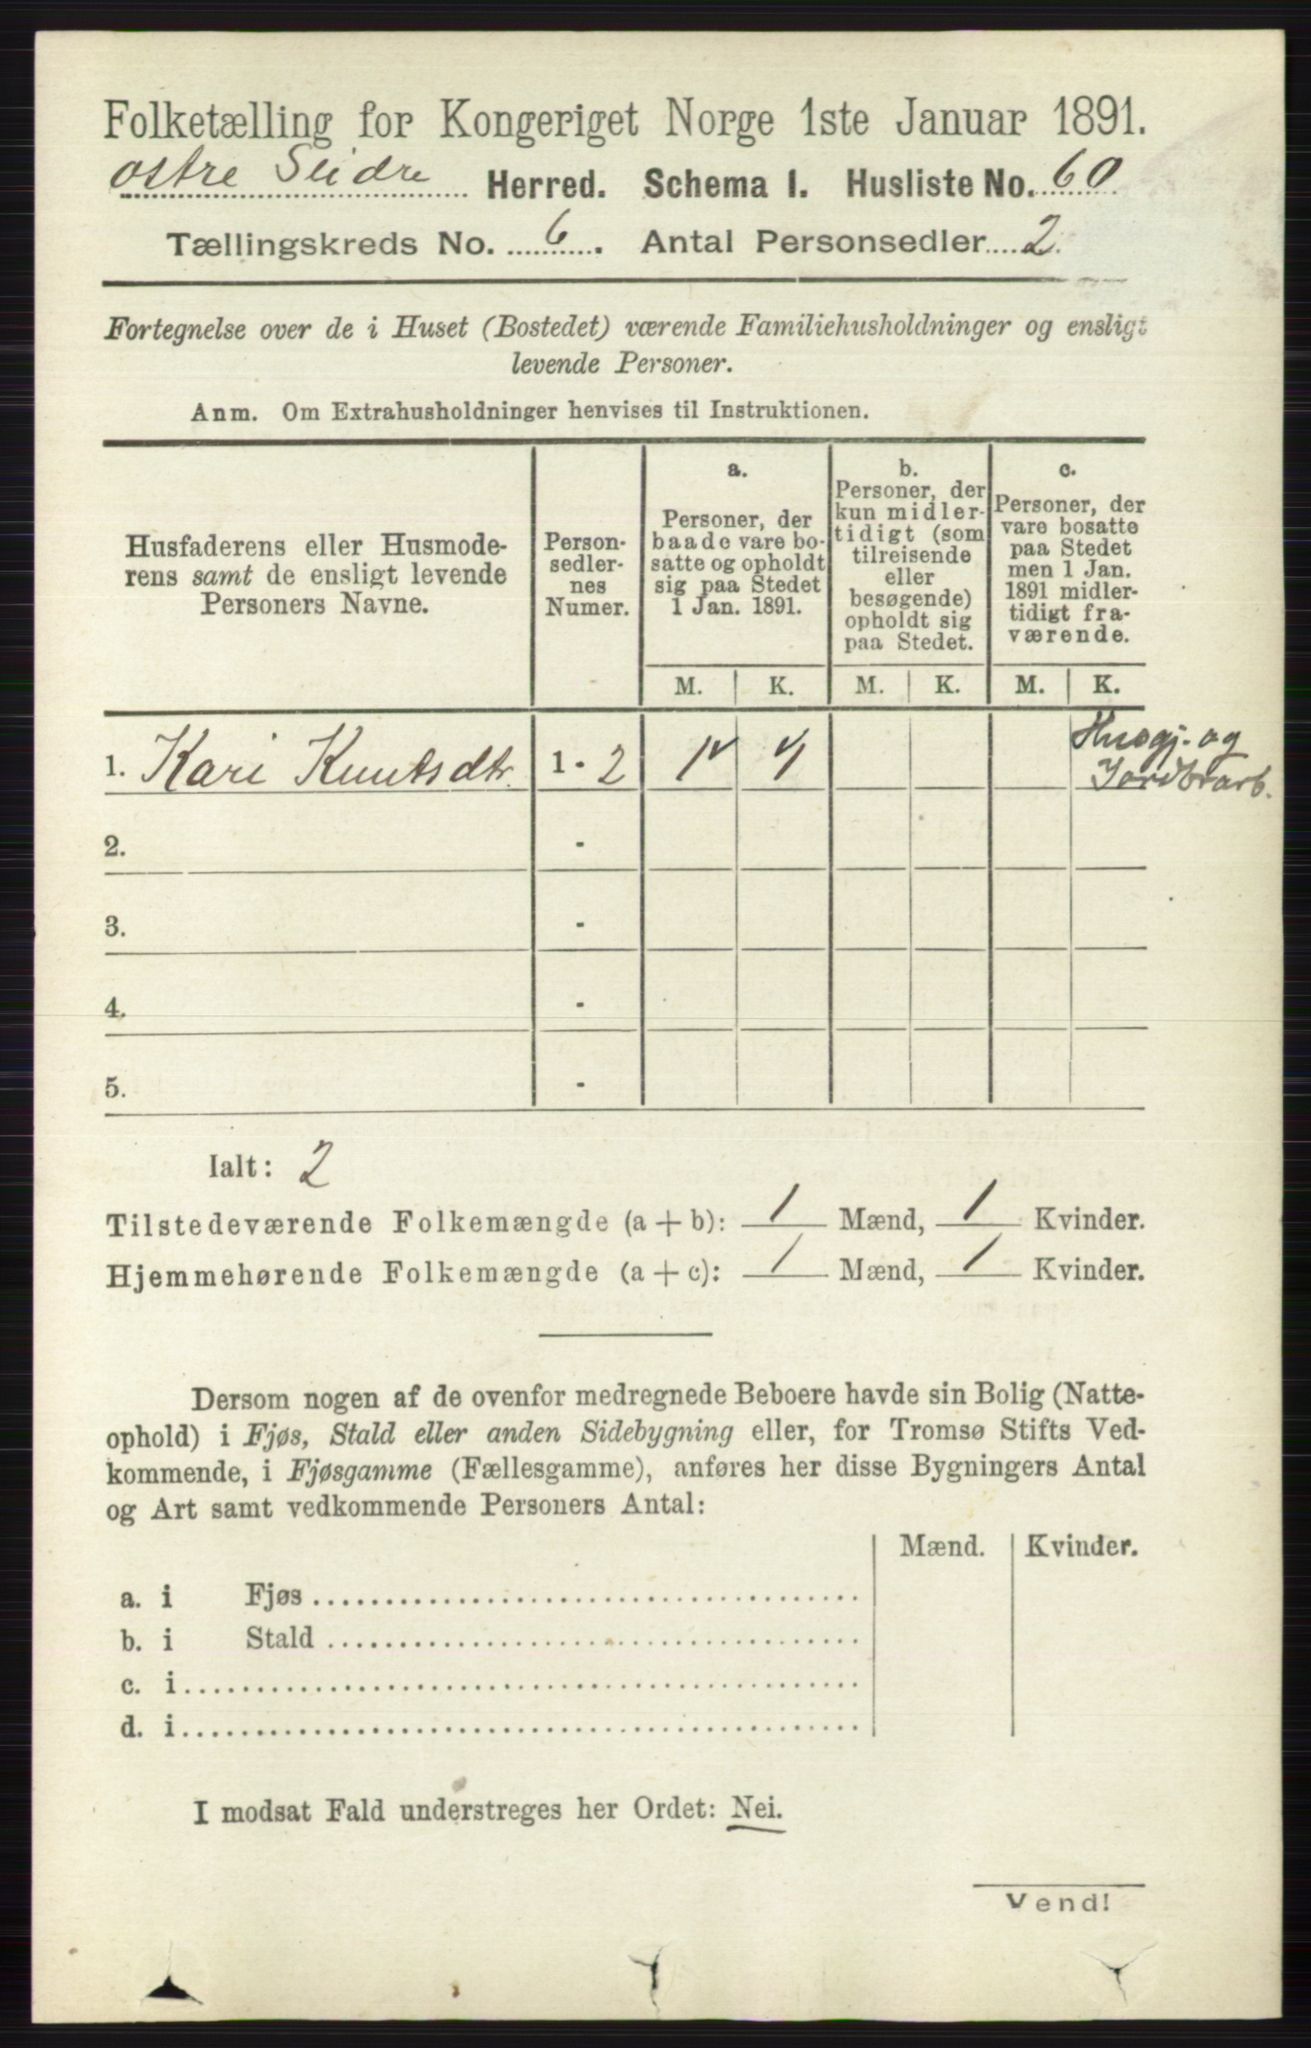 Folketælling for Kongeriget Norge 1ste Januar 1891.
østre Slidre Herred. Schema I. Husliste No. 60
Tællingskreds No. 6. Antal Personsedler 2.
Fortegnelse over de i Huset (Bostedet) værende Familiehusholdninger og ensligt
levende Personer.
Anm. Om Extrahusholdninger henvises til Instruktionen.
Husfaderens eller Husmode-
rens samt de ensligt levende
Personers Navne.
Person-
sedler-
nes
Numer.
a.
Personer, der
baade vare bo-
satte og opholdt
sig paa Stedet
1 Jan. 1891.
b.
Personer, der
kun midler-
tidigt (som
tilreisende
eller
besøgende)
opholdt sig
paa Stedet.
c.
Personer, der
vare bosatte
paa Stedet
men 1 Jan.
1891 midler-
tidigt fra-
værende.
M. K. M. K. M. K.
1. Kari Knutsdtr. 1 - 2 1 1 Husgj. og
Jordbrarb.
2. -
3. -
4. -
5. -
Ialt: 2
Tilstedeværende Folkemængde (a + b): 1 Mænd, 1 Kvinder.
Hjemmehørende Folkemængde (a + c): 1 Mænd, 1 Kvinder.
Dersom nogen af de ovenfor medregnede Beboere havde sin Bolig (Natte-
ophold) i Fjøs, Stald eller anden Sidebygning eller, for Tromsø Stifts Ved-
kommende, i Fjøsgamme (Fællesgamme), anføres her disse Bygningers Antal
og Art samt vedkommende Personers Antal:
Mænd. Kvinder.
a. i Fjøs
b. i Stald
c. i
d. i
I modsat Fald understreges her Ordet: Nei.
Vend!